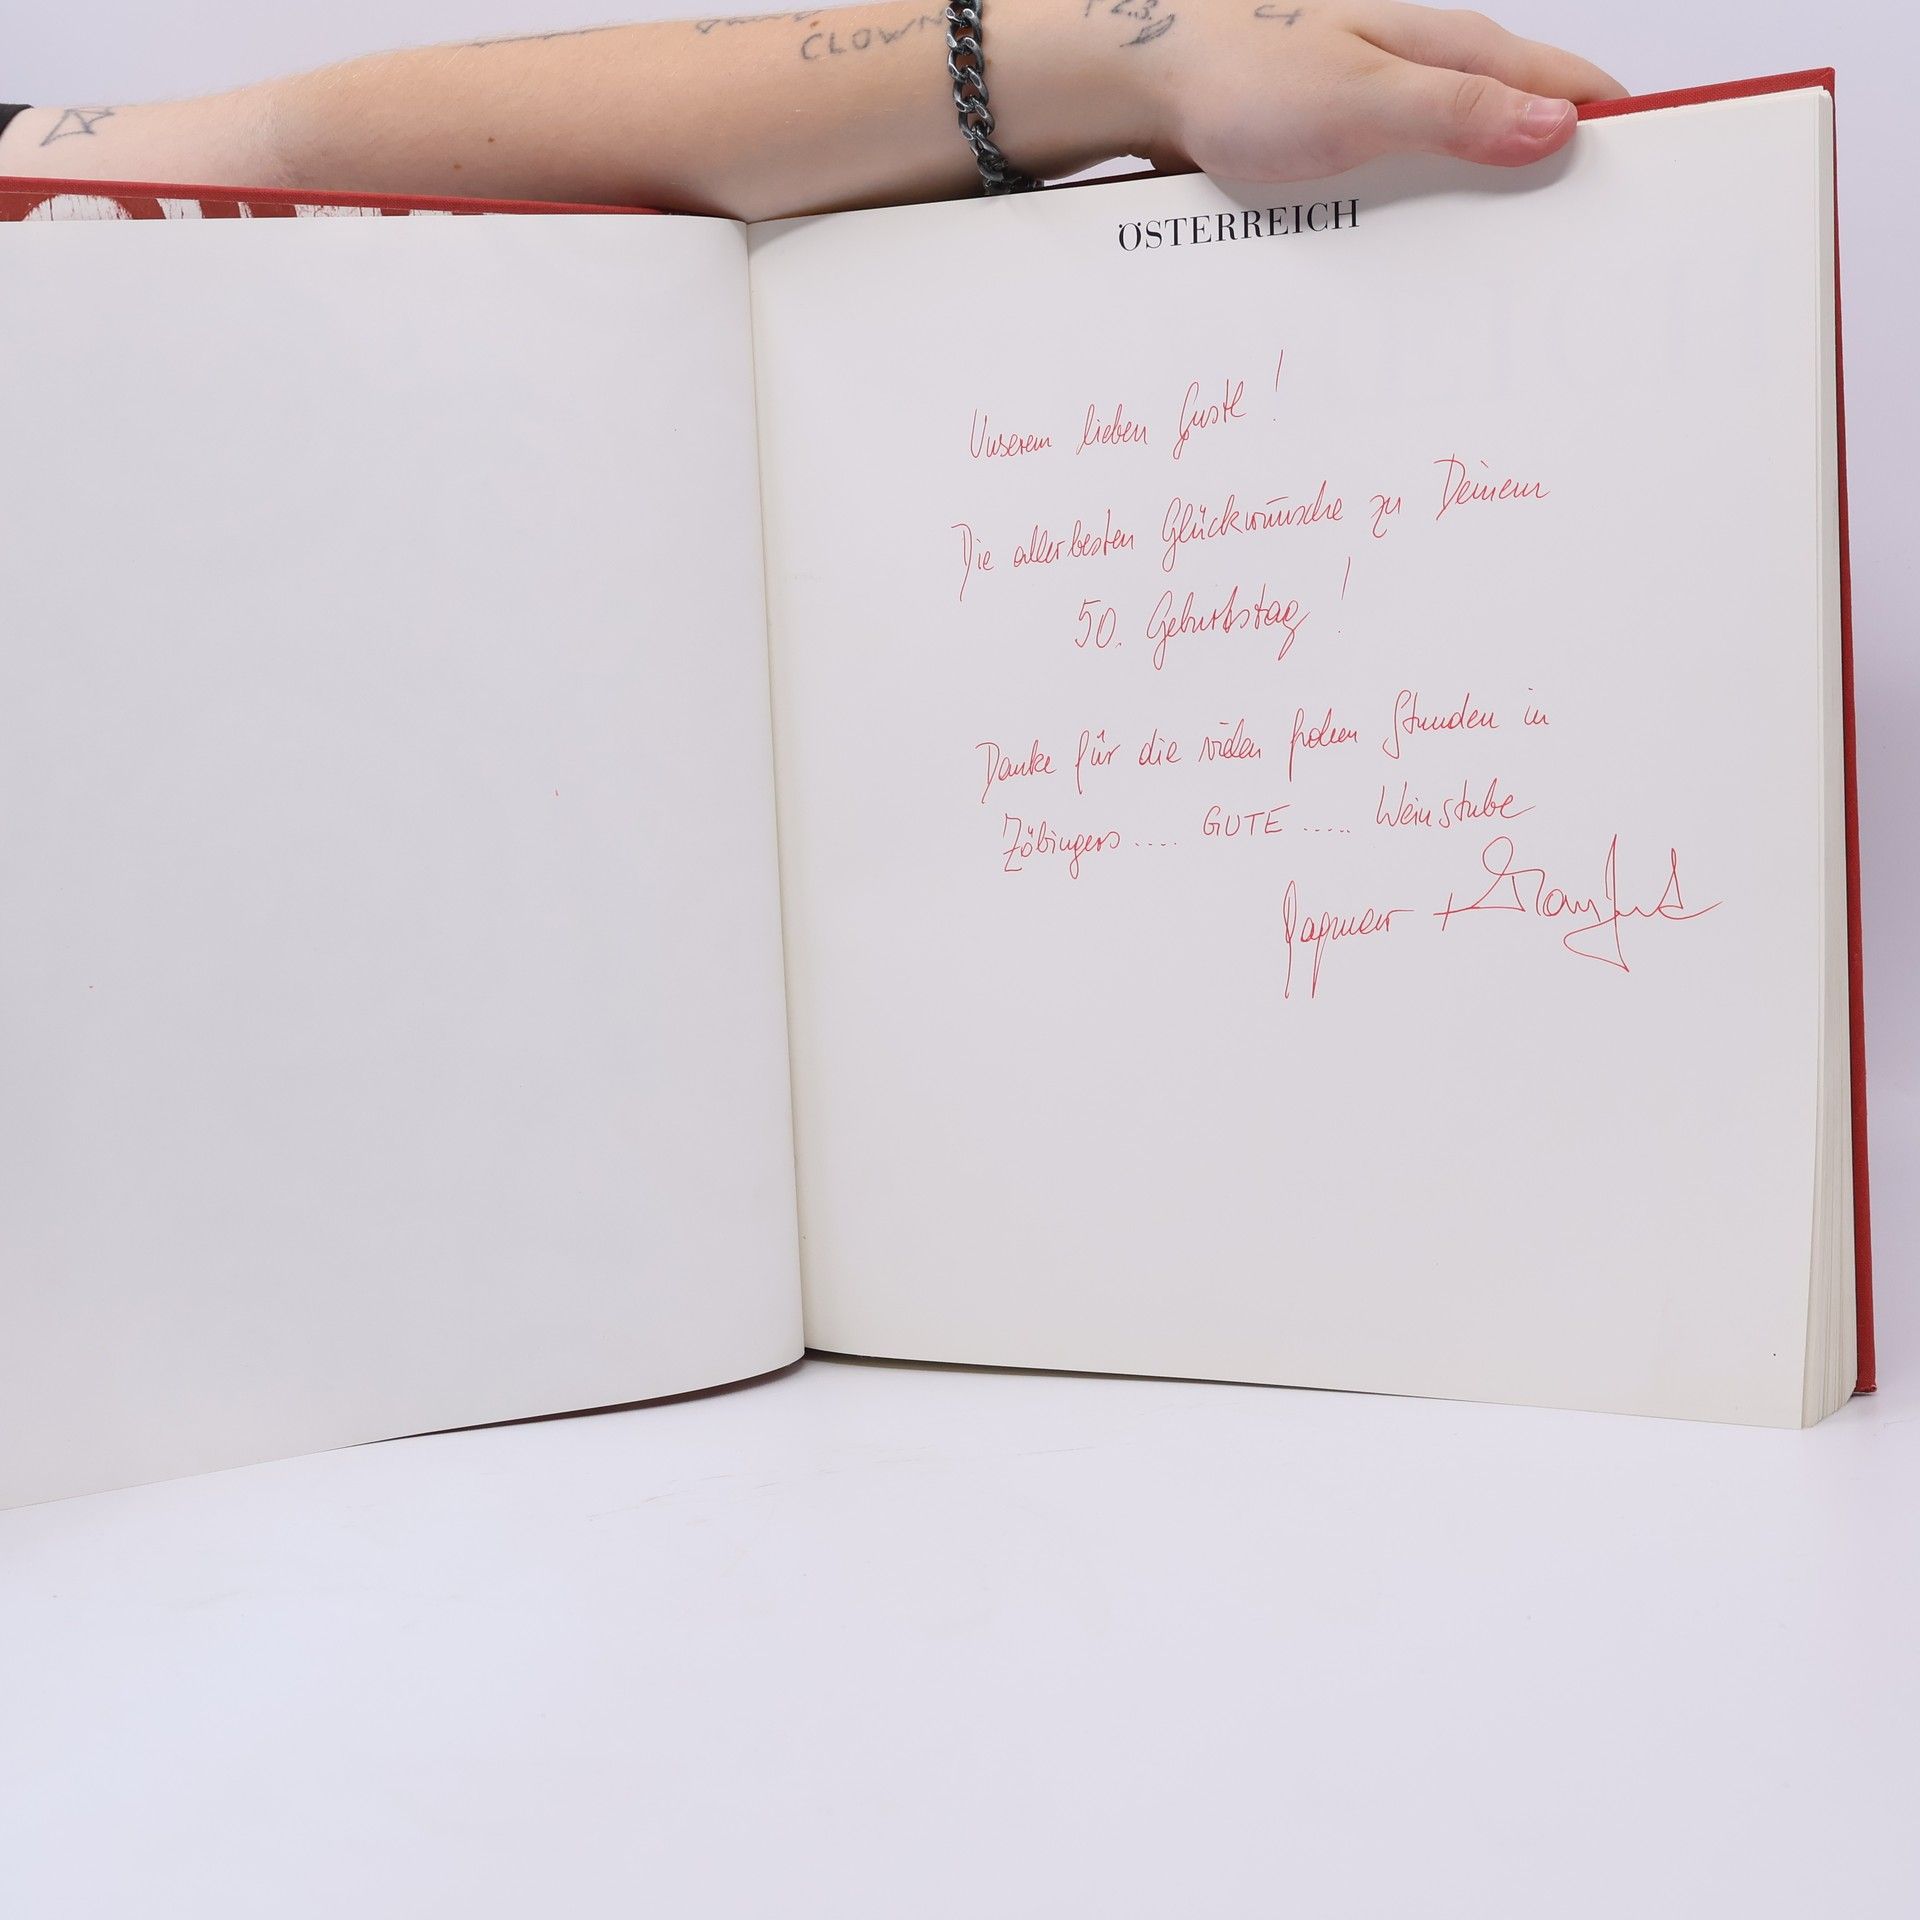 CLOWN
ÖSTERREICH
Unserem lieben Gustl!
Die allerbesten Glückwünsche zu Deinem
50. Geburtstag!
Danke für die vielen frohen Stunden in
Zöbingers .... GUTE ..... Weinstube
Dagmar + Manfred